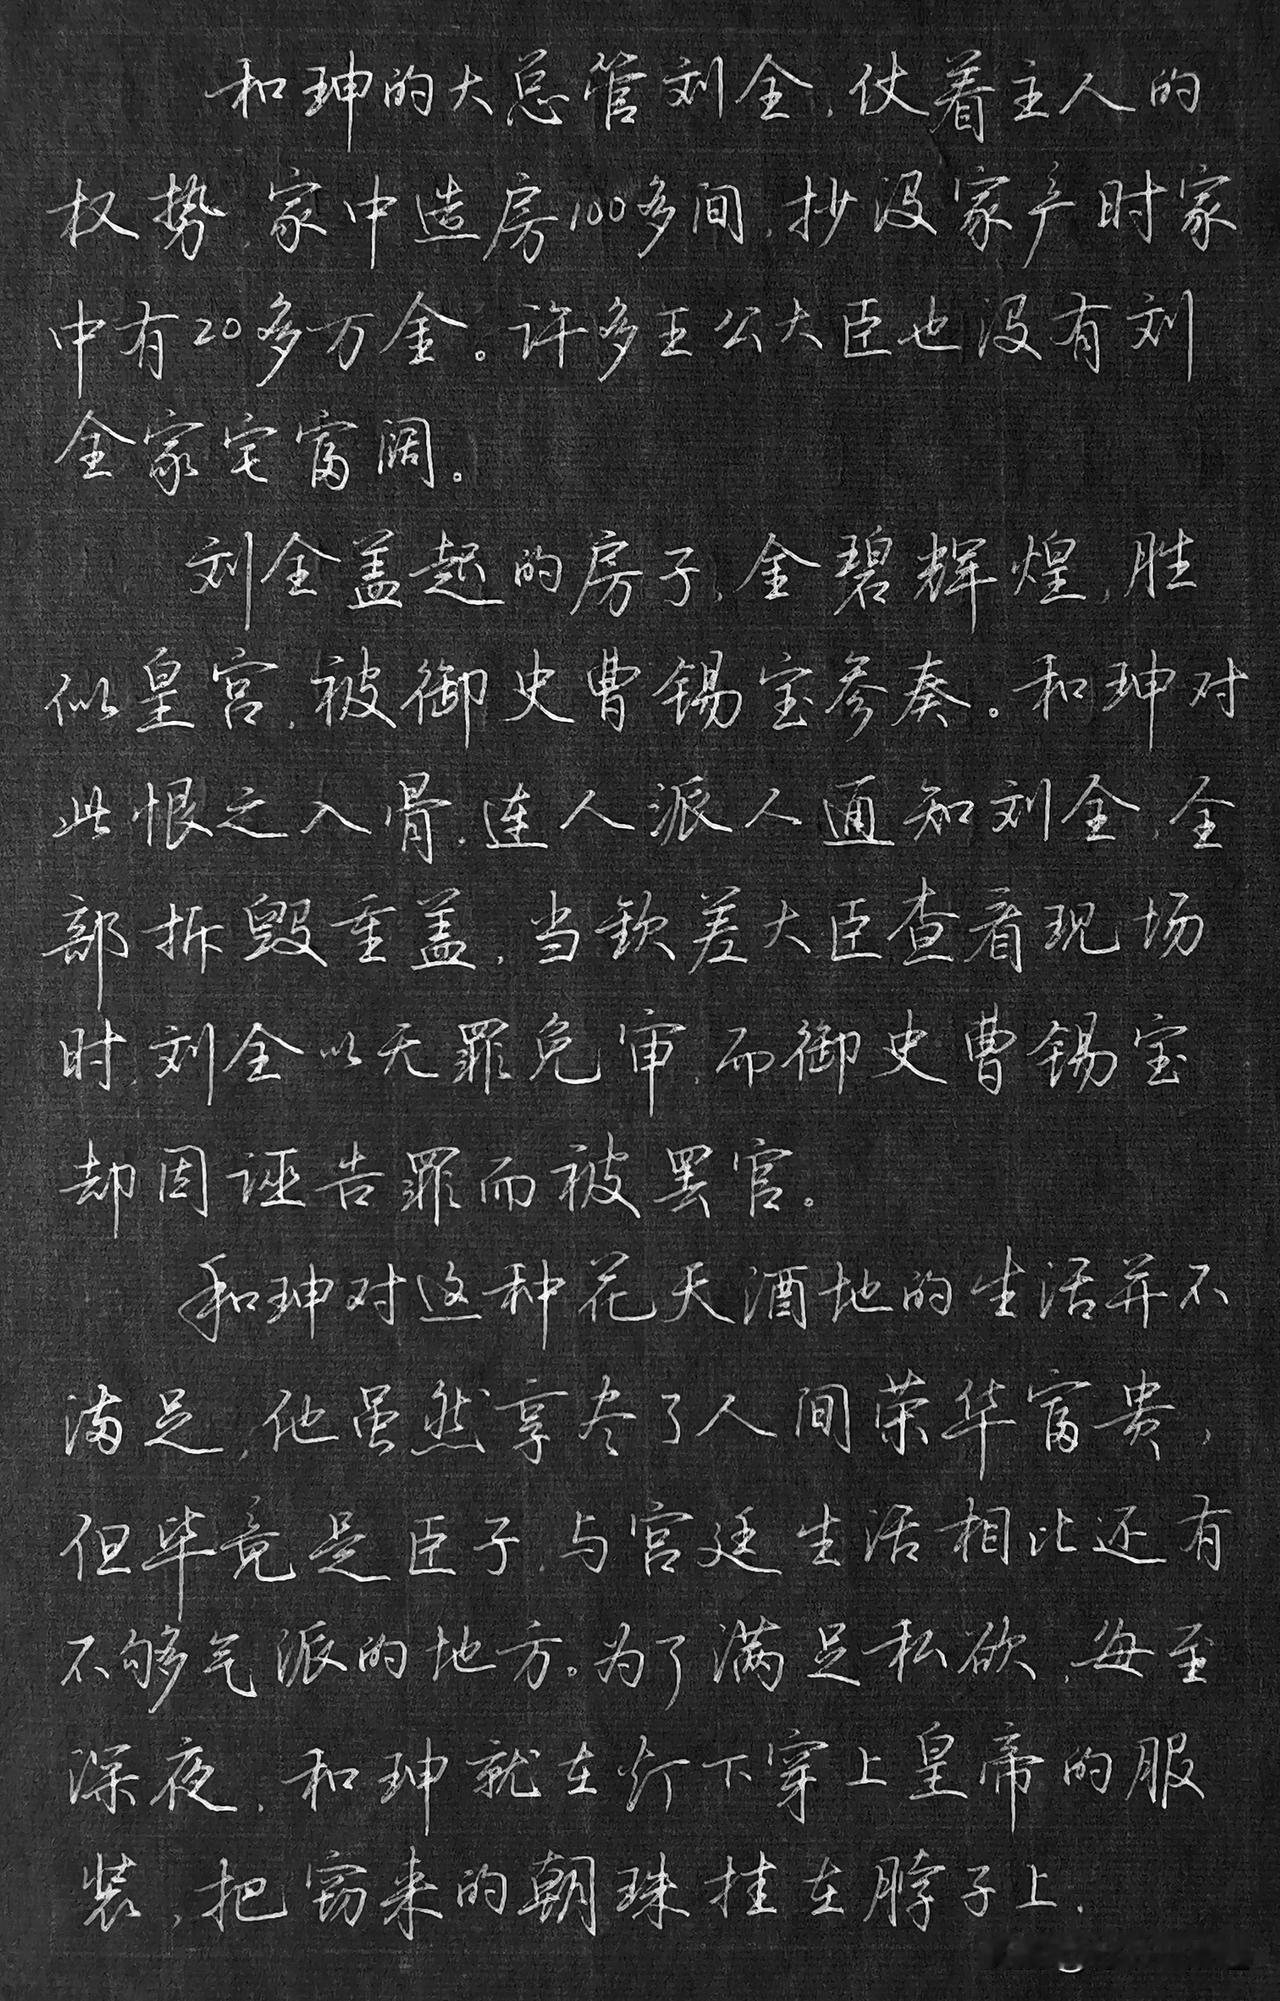 和珅的大总管刘全,仗着主人的
权势,家中造房100多间,抄没家产时家
中有20多万金。许多王公大臣也没有刘
全家宅富阔。
刘全盖起的房子,金碧辉煌,胜
似皇宫,被御史曹锡宝参奏。和珅对
此恨之入骨,连人派人通知刘全,全
部拆毁重盖,当钦差大臣查看现场
时,刘全以无罪免审,而御史曹锡宝
却因诬告罪而被罢官。
和珅对这种花天酒地的生活并不
满足,他虽然享尽了人间荣华富贵,
但毕竟是臣子,与宫廷生活相比还有
不够气派的地方。为了满足私欲,每至
深夜,和珅就在灯下穿上皇帝的服
装,把窃来的朝珠挂在脖子上.